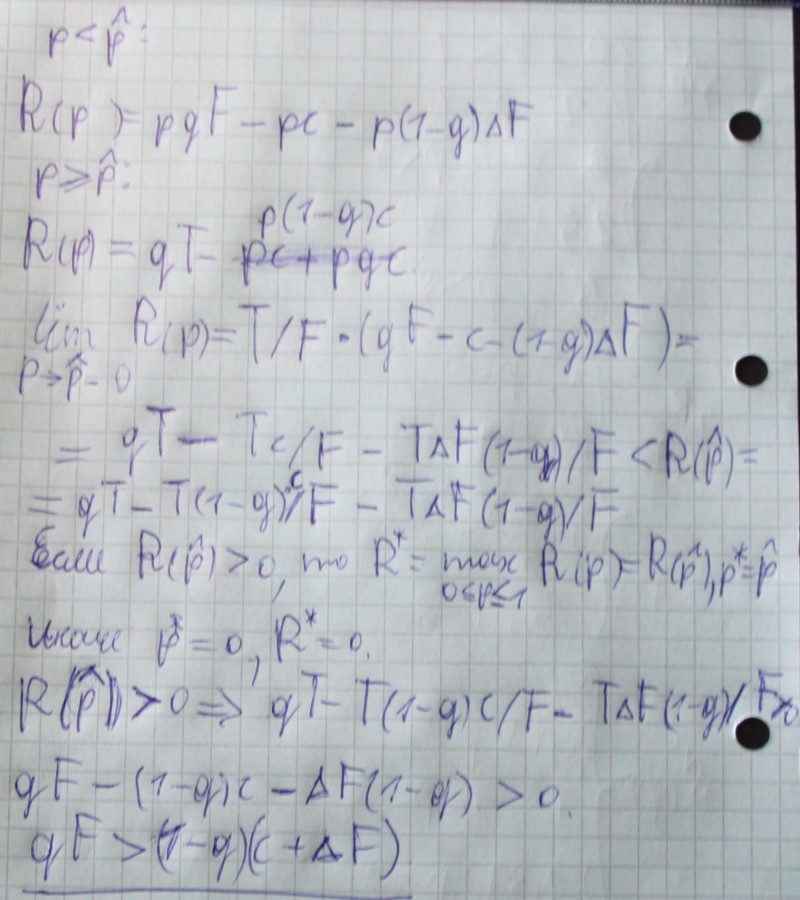 p < p̂:
R(p) = pqF − pc − p(1−q)ΔF
p ≥ p̂:
p(1−q)c
R(p) = qT − pc + pqc
lim R(p) = T/F · (qF − c − (1−q)ΔF) =
p→p̂−0
= qT − Tc/F − TΔF(1−q)/F < R(p̂) =
= qT − T(1−q)c/F − TΔF(1−q)/F
Если R(p̂) > 0, то R* = max R(p) = R(p̂), p* = p̂
0≤p≤1
Иначе p* = 0, R* = 0.
R(p̂) > 0 ⇒ qT − T(1−q)c/F − TΔF(1−q)/F > 0
qF − (1−q)c − ΔF(1−q) > 0.
qF > (1−q)(c + ΔF)